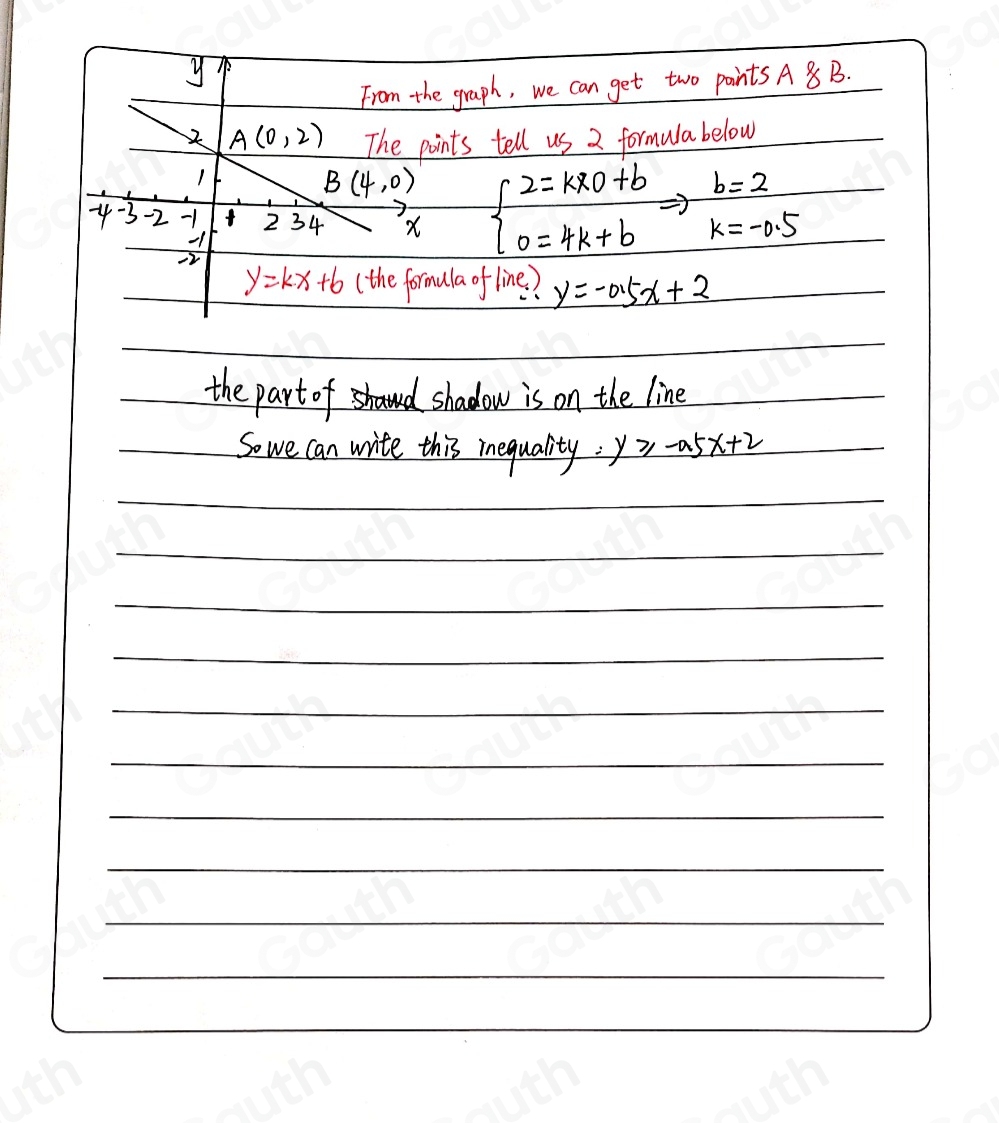 y
From the graph, we can get two points A & B.
2 A (0, 2) The points tell us 2 formula below
1 B (4, 0) { 2 = k×0 + b ⇒ b = 2
-4 -3 -2 -1 1 2 3 4 x 0 = 4k + b k = -0.5
-1
-2
y = kx + b (the formula of line) ∴ y = -0.5x + 2
the part of shadow is on the line
So we can write this inequality : y ⩾ -0.5x+2
Gauth